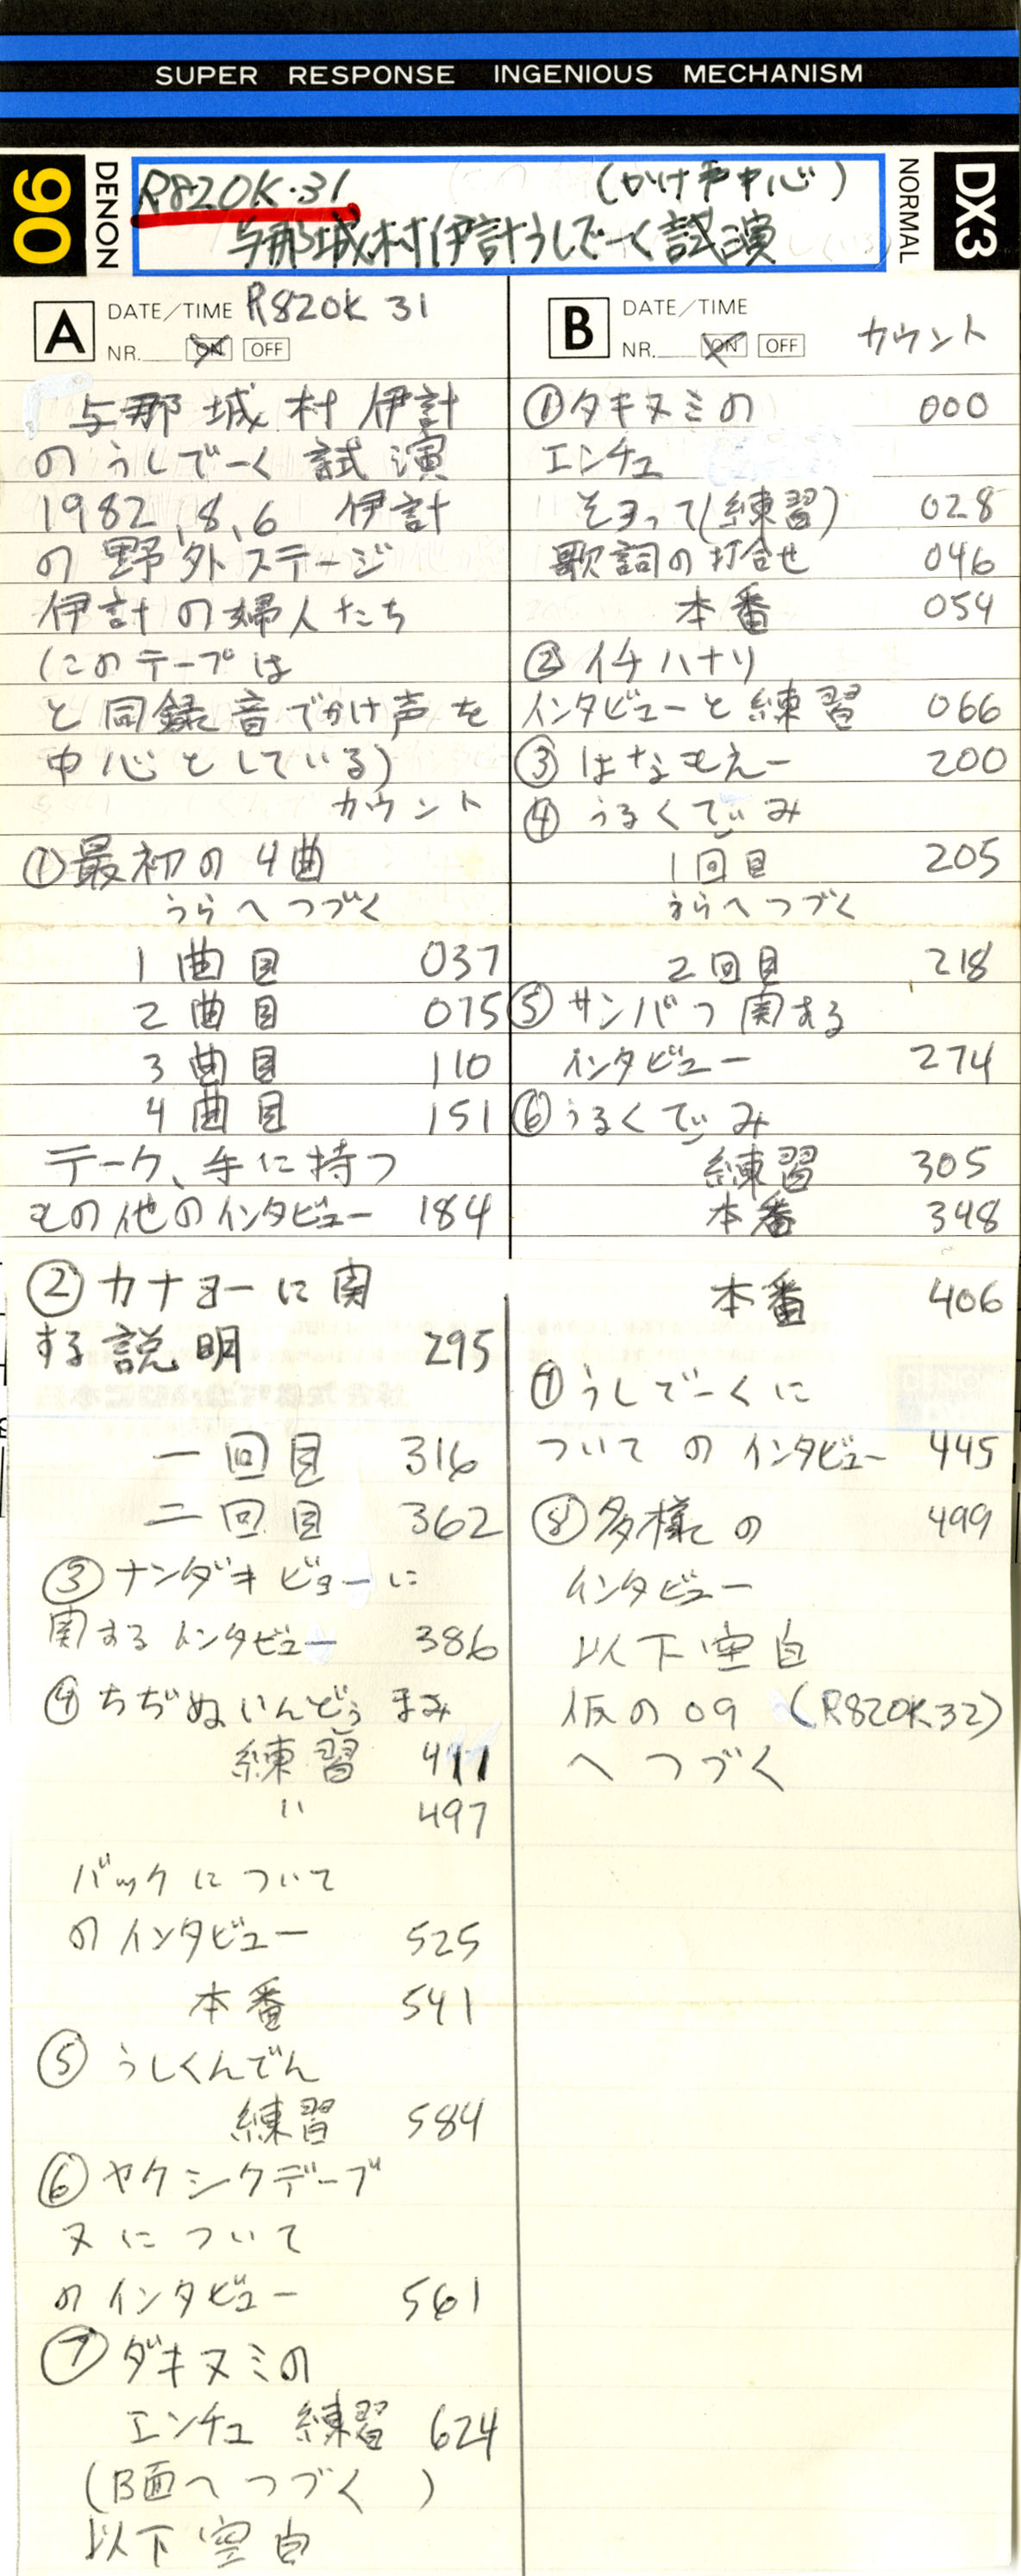 SUPER RESPONSE INGENIOUS MECHANISM
90
DENON
R820K・31 (かけ声中心)
与那城村伊計うしでーく試演
NORMAL
DX3
A DATE/TIME R820K 31
NR. ON OFF
与那城村伊計
のうしでーく試演
1982,8,6 伊計
の野外ステージ
伊計の婦人たち
(このテープは
と同録音でかけ声を
中心としている)
カウント
①最初の4曲
うらへつづく
1曲目 037
2曲目 075
3曲目 110
4曲目 151
テーク、手に持つ
もの他のインタビュー 184
②カナヨーに関
する説明 295
一回目 316
二回目 362
③ナンダキビョーに
関するインタビュー 386
④ちぢぬいんどぅ まみ
練習 411
〃 497
バックについて
のインタビュー 525
本番 541
⑤うしくんでん
練習 584
⑥ヤクシクデーブ
ヌについて
のインタビュー 561
⑦ダキヌミの
エンチュ 練習 624
(B面へつづく )
以下空白
B DATE/TIME
NR. ON OFF
カウント
①タキヌミの 000
エンチュ
そろって(練習) 028
歌詞の打合せ 046
本番 054
②イチハナリ
インタビューと練習 066
③はなもえー 200
④うるくてぃみ
1回目 205
うらへつづく
2回目 218
⑤サンバつ関する
インタビュー 274
⑥うるくでぃみ
練習 305
本番 348
本番 406
⑦うしでーくに
ついてのインタビュー 445
⑧多様の 499
インタビュー
以下空白
仮の09 (R820K32)
へつづく